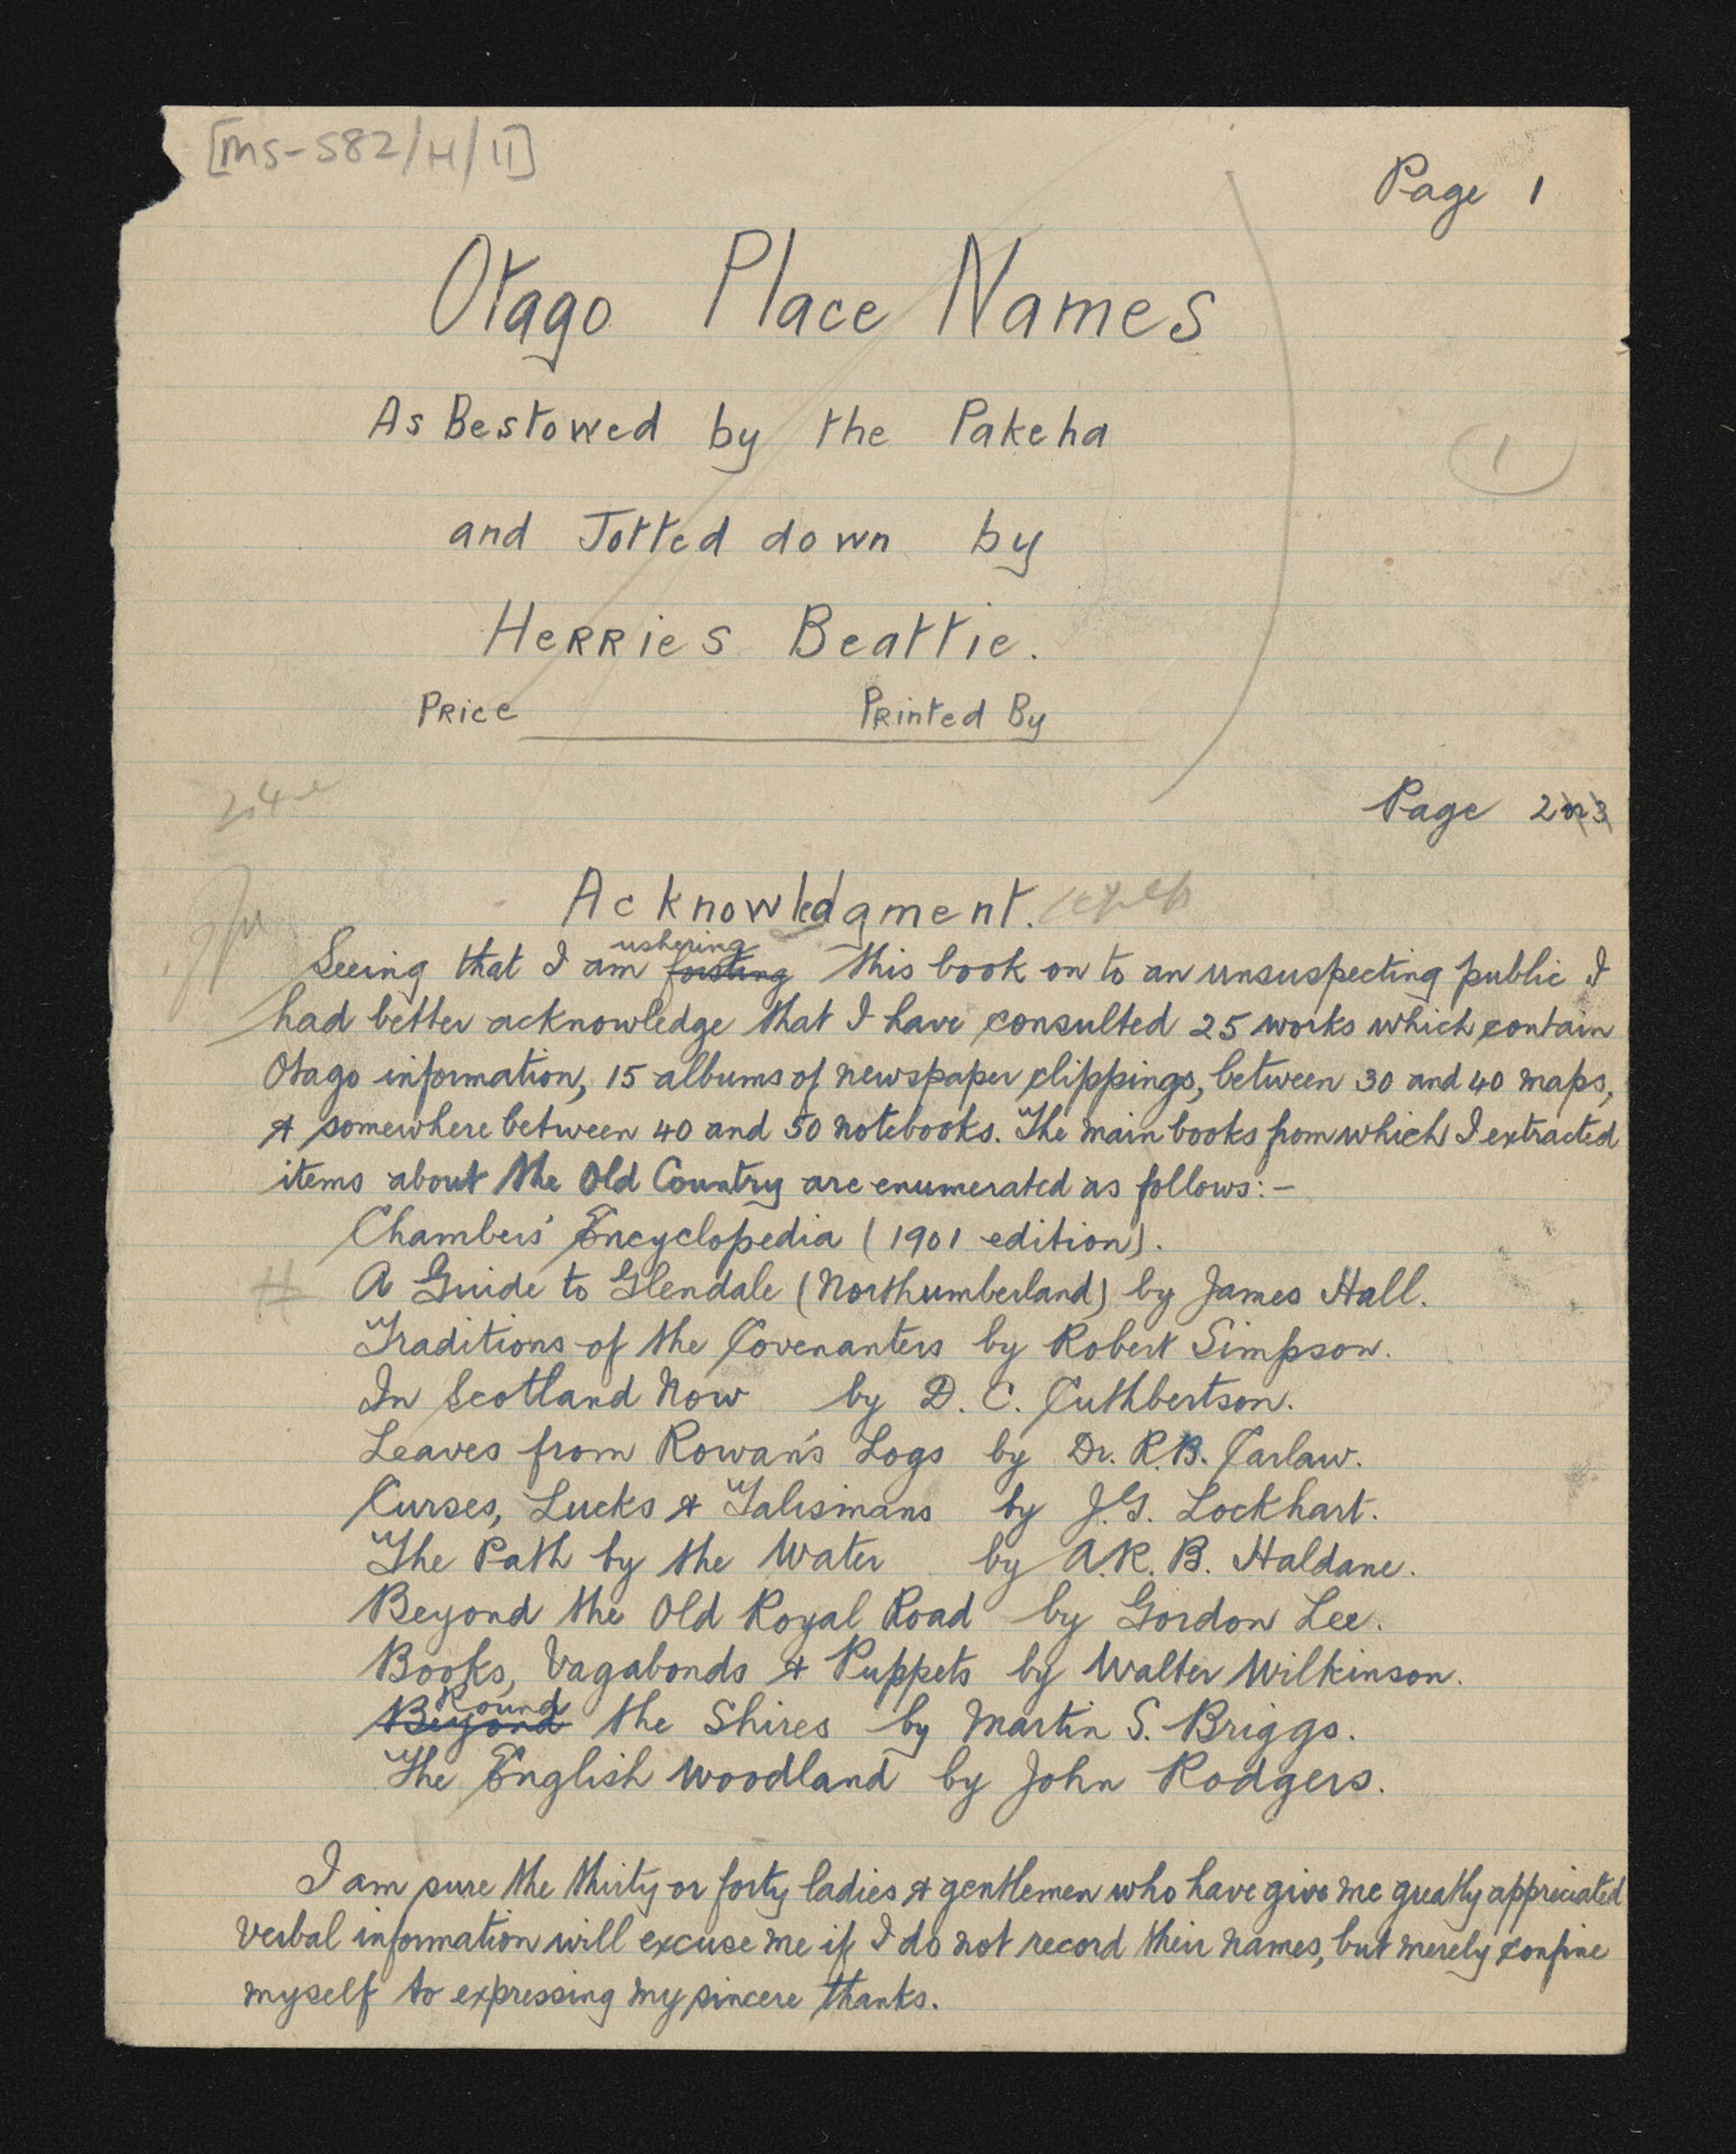 [MS-582/H/11]
Page 1
Otago Place Names
As Bestowed by the Pakeha
1
and Jotted down by
Herries Beattie.
Price Printed By
Page 2 or 3
Acknowledgment.
ushering
Seeing that I am foisting this book on to an unsuspecting public I
had better acknowledge that I have consulted 25 works which contain
Otago information, 15 albums of newspaper clippings, between 30 and 40 maps,
& somewhere between 40 and 50 notebooks. The main books from which I extracted
items about the Old Country are enumerated as follows:-
Chambers' Encyclopedia (1901 edition).
A Guide to Glendale (Northumberland) by James Hall.
Traditions of the Covenanters by Robert Simpson.
In Scotland Now by D. C. Cuthbertson.
Leaves from Rowan's Logs by Dr. R.B. Carlaw.
Curses, Lucks & Talismans by J.G. Lockhart.
The Path by the Water by A.R.B. Haldane.
Beyond the Old Royal Road by Gordon Lee.
Books, Vagabonds & Puppets by Walter Wilkinson.
Round
Beyond the Shires by Martin S. Briggs.
The English Woodland by John Rodgers.
I am sure the thirty or forty ladies & gentlemen who have give me greatly appreciated
verbal information will excuse me if I do not record their names, but merely confine
myself to expressing my sincere thanks.